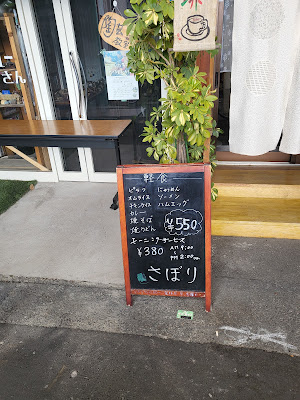 軽食
ピラフ にゅうめん
オムライス ソーメン
チキンライス ハムエッグ
カレー
焼そば ¥550
焼うどん
モーニングサービス
¥380 AM 9:00
〜
PM 2:00
さぼり
陶
さん